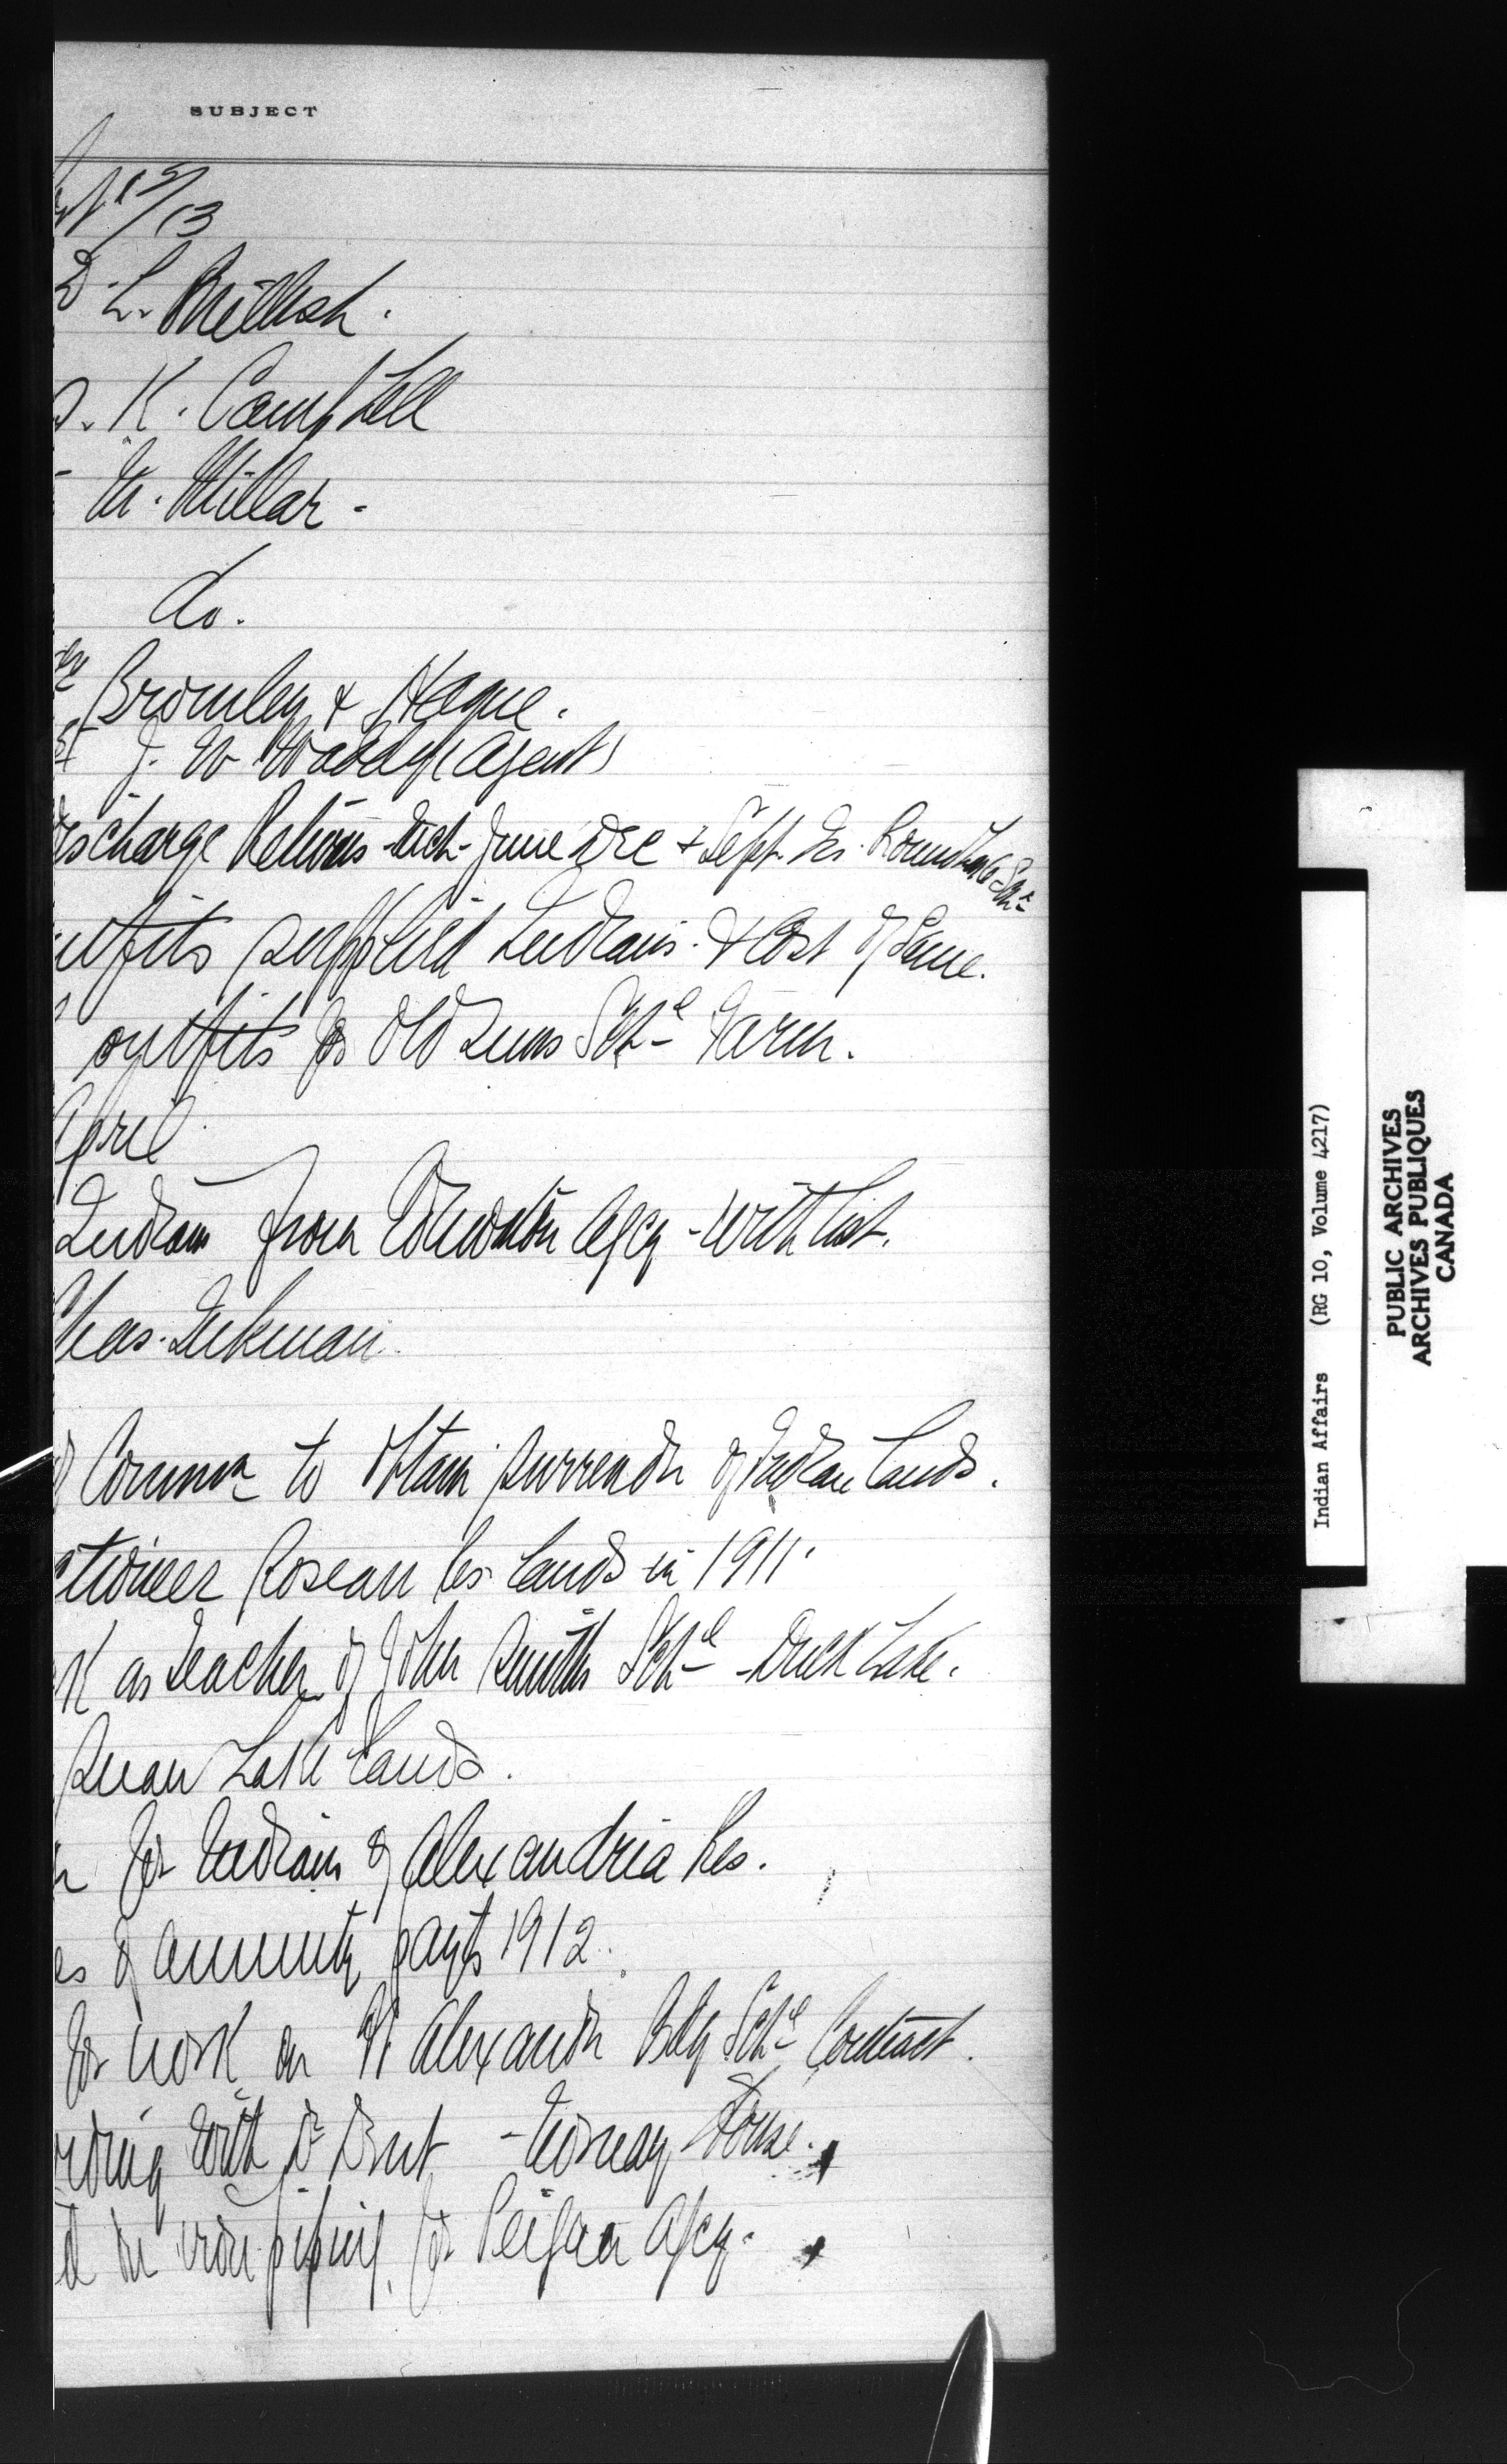 SUBJECT
15/13
D. L. Mellish.
K. Campbell
M. Millar -
do.
Bromley & Hague.
J. W Waddy (Agent)
scharge Returns Mch June Dec & Sept. Qr. Round Lake Schl
utfits supplied Indians & cost of same.
outfits for Old Suns Schl Farm.
April
Indian from Edmonton Agcy - with list.
Chas.
Commn to obtain surrender of Indian Lands.
Roseau Res Lands in 1911.
K as Teacher of John Smith Schl - Duck Lake.
Swan Lake Lands.
for Indians of Alexandria Res.
es of annuity payts 1912.
for work on St Alexander Bdg Schl Contract.
rding with Dr - Norway House.
d on iron piping for Peigan Agcy.
Indian Affairs (RG 10, Volume 4217)
PUBLIC ARCHIVES
ARCHIVES PUBLIQUES
CANADA